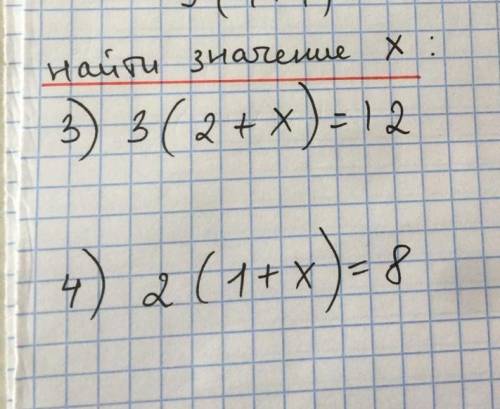 найти значение x :
3) 3(2+x)=12
4) 2(1+x)=8